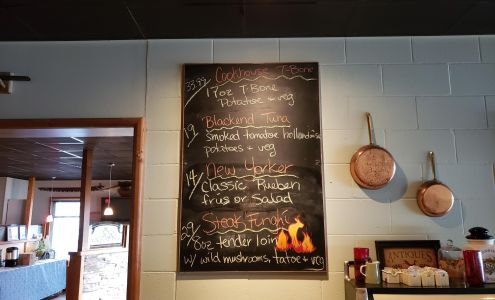 33.99/ Cookhouse T-Bone
17oz T-Bone
Potatoe + veg
19/ Blackend Tuna
Smoked tomatoe hollandaise
potatoes + veg
14/ New Yorker
Classic Rueben
frys or Salad
29/ Steak Funghi
8oz tender loin
w/ wild mushrooms, tatoe + veg
ANTIQUES